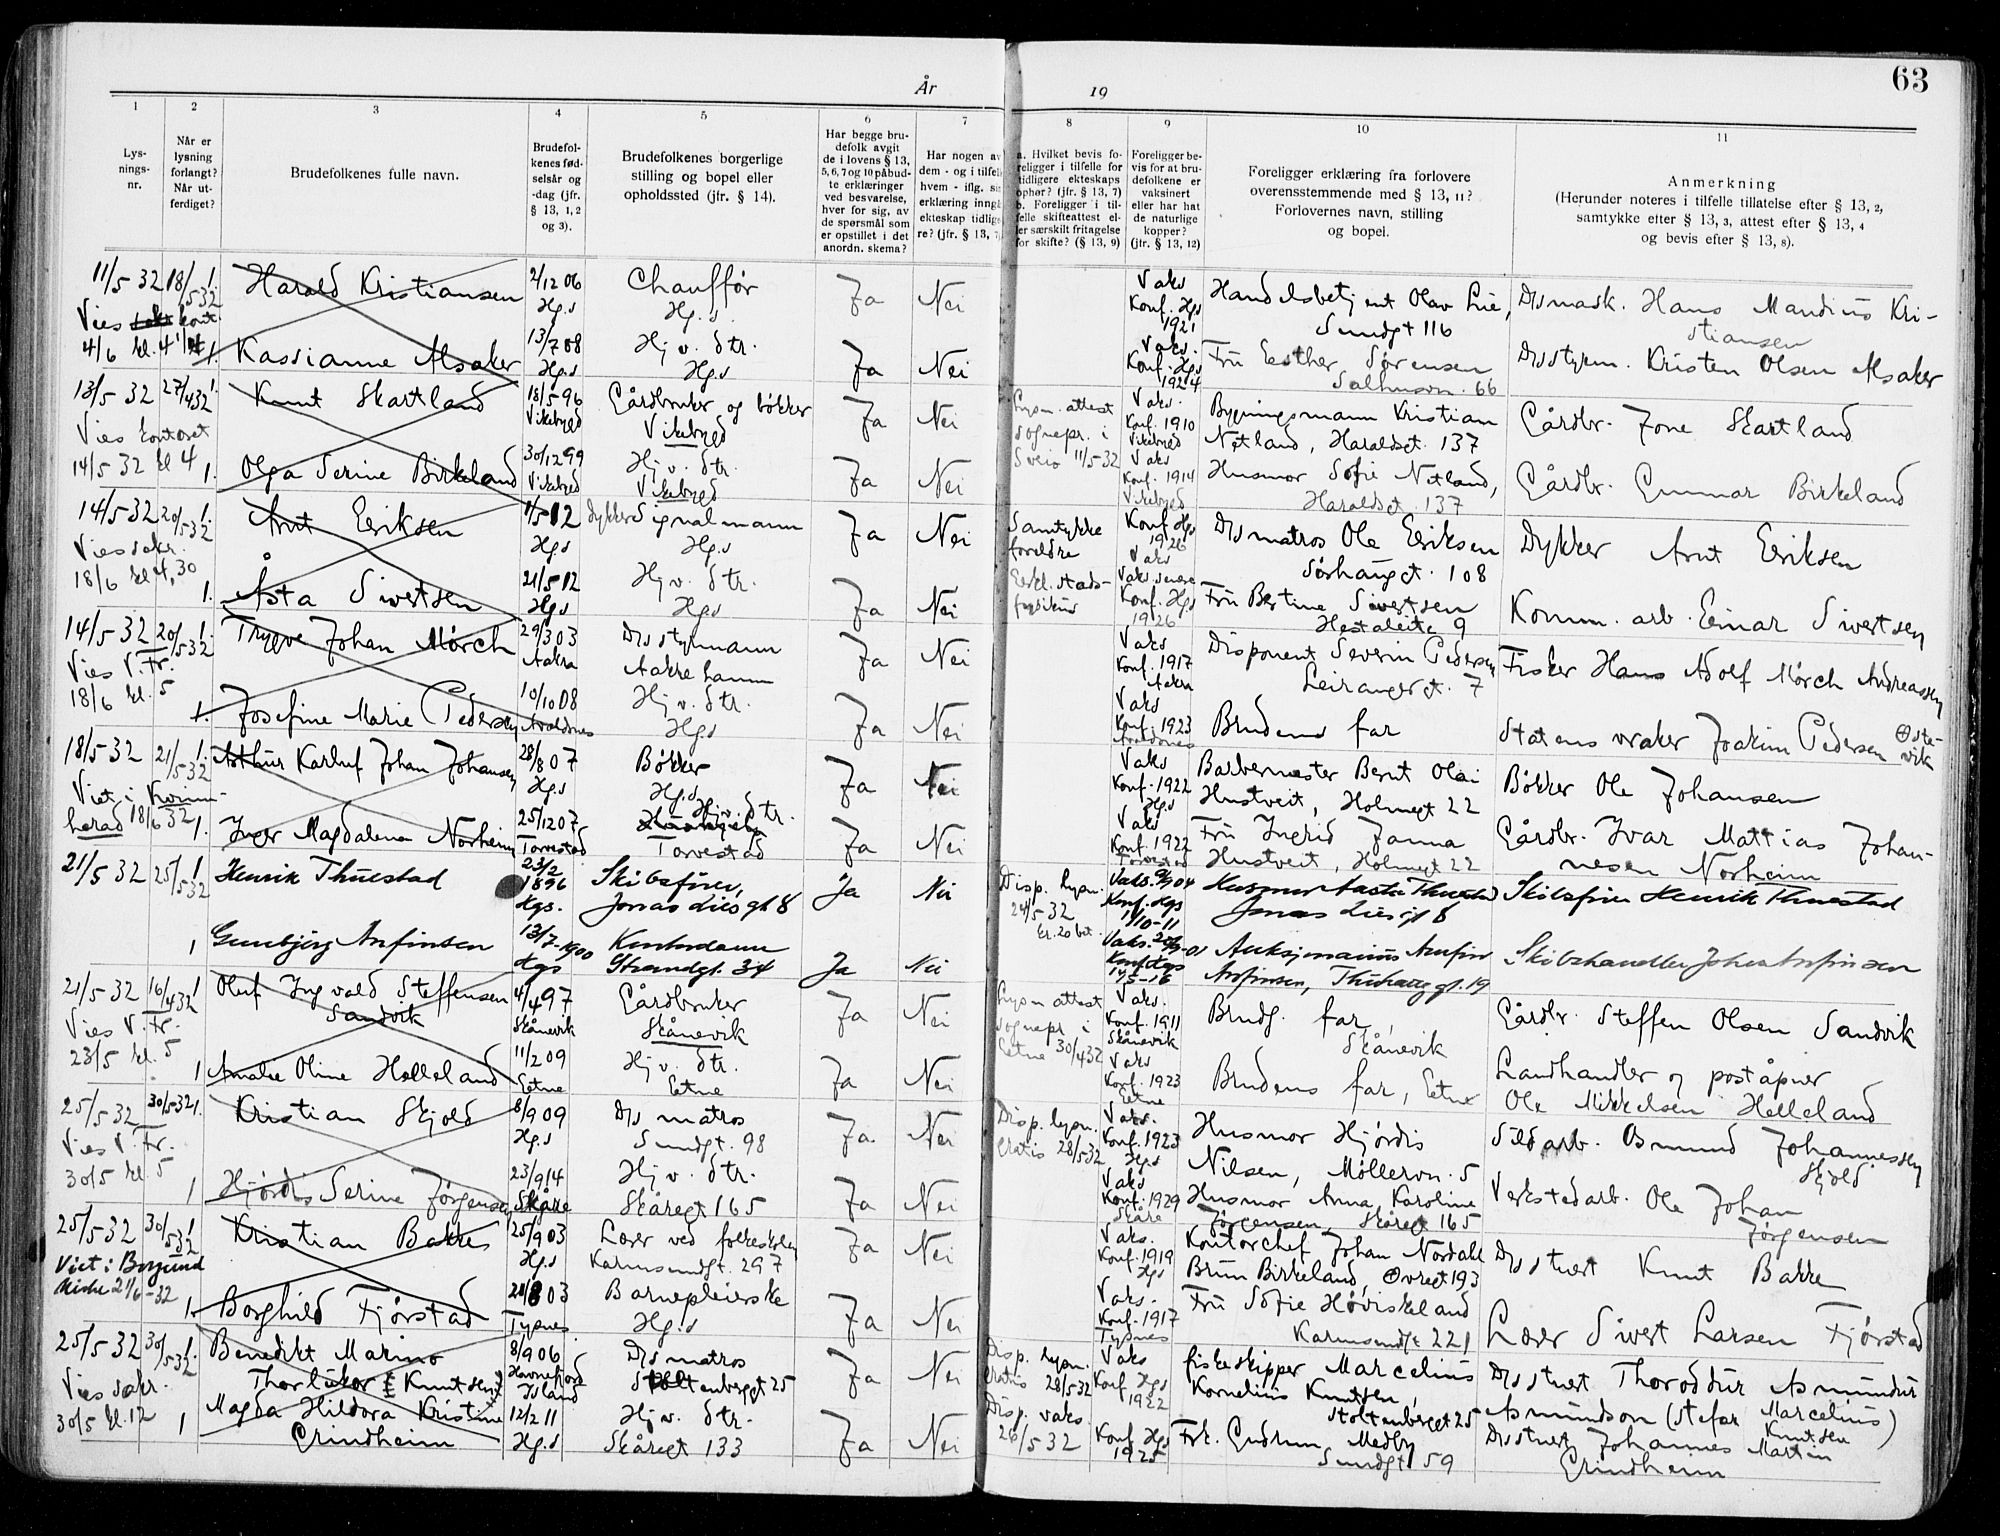 63
År
19
1
2
3
4
5
6
7
8
9
10
11
Lys-
nings-
nr.
Når er
lysning
forlangt?
Når ut-
ferdiget?
Brudefolkenes fulle navn.
Brudefol-
kenes fød-
selsår og
-dag (jfr.
§ 13, 1, 2
og 3).
Brudefolkenes borgerlige
stilling og bopel eller
opholdssted (jfr. § 14).
Har begge bru-
defolk avgit
de i lovens § 13,
5, 6, 7 og 10 påbud-
te erklæringer
ved besvarelse,
hver for sig, av
de spørsmål som
er opstillet i det
anordn. skema?
Har nogen av
dem - og i tilfelle
hvem - iflg. sin
erklæring inngå
ekteskap tidlige
re? (jfr. § 13, 7
a. Hvilket bevis fo-
religger i tilfelle for
tidligere ekteskaps
ophør? (jfr. § 13, 7)
b. Foreligger i til-
felle skifteattest el-
ler særskilt fritagelse
for skifte? (§ 13, 9)
Foreligger be-
vis for at bru-
defolkene er
vaksinert
eller har hat
de naturlige
kopper?
(jfr. § 13, 12)
Foreligger erklæring fra forlovere
overensstemmende med § 13, 11?
Forlovernes navn, stilling
og bopel.
Anmerkning
(Herunder noteres i tilfelle tillatelse efter § 13, 2,
samtykke efter § 13, 3, attest efter § 13, 4
og bevis efter § 13, 8).
11/5 32 18/5 32 1. Harald Kristiansen 2/12 06 Hgs Chauffør Hg.s. Ja Nei Vaks Konf. Hgs 1921 Handelsbetjent Olav Lie, Sundgt 116 Dsmask. Hans Mandius Kri-
stiansen
Vies kont.
4/6 kl. 4 1. Kassianne Alsaker 13/7 08 Hg.s Hj v. str. Hg.s Ja Nei Vaks. Konf. Hgs 1924 Fru Esther Sørensen Salhusvn. 66 Dsstyrm. Kristen Olsen Alsaker
13/5 32 27/4 32 1. Knut Skartland 18/5 96 Vikebygd Gårdbruker og bøkker Vikebygd Ja Nei Lysn. attest Vaks. Konf. 1910 Vikebygd Bygningsmann Kristian Netland, Haraldsgt. 137 Gårdbr. Tone Skartland
Vies kontoret sognepr. i
14/5 32 kl 4 1. Olga Serine Birkeland 30/12 99 Vikebygd Hj v. str. Vikebygd Ja Nei Sveio 11/5 32 Vaks Konf. 1914 Vikebygd Husmor Sofie Netland, Haraldsgt. 137 Gårdbr. Gunnar Birkeland
14/5 32 20/5 32 1. Arnt Eriksen 1/5 12 Hg.s dykker Signalmann Hg.s Ja Nei Samtykke foreldre Konf. Hgs 1926 Vaks Dsmatros Ole Eriksen Sørhauggt. 108 Dykker Arnt Eriksen
Vies sakr.
18/6 kl 4,30 1. Åsta Sivertsen 21/5 12 Hgs Hj v. str. Hgs Ja Nei Erkl. stads-
fysikus Vaks. senere Konf. Hgs 1926 Fru Bertine Sivertsen Hestaleite 9 Komm. arb. Einar Sivertsen
14/5 32 20/5 32 1. Trygve Johan Mørch 29/3 03 Aakra Dsstyrmann Aakrehamn Ja Nei Vaks Konf. 1917 Aakra Disponent Severin Pedersen Leirangergt. 7 Fisker Hans Adolf Mørch Andreassen
Vies V. Fr.
18/6 kl. 5 1. Josefine Marie Pedersen 10/10 08 Avaldsnes Hj v. str. Hg.s Ja Nei Vaks Konf. 1923 Avaldsnes Brudens far Statens vraker Joakim Pedersen Øste-
vik
18/5-32 21/5 32 1. Arthur Karluf Johan Johansen 28/8 07 Hg.s Bøkker Hg.s Ja Nei Vaks Konf. 1922 Hg.s Barbermester Bernt Olai Hustveit, Holmegt 22 Bøkker Ole Johansen
Viet i Kvinn-
herad 18/6 32 1. Inger Magdalena Norheim 25/12 07 Torvestad Hj v. str. Torvestad Ja Nei Vaks Konf. 1922 Torvestad Fru Ingrid Janna Hustveit, Holmegt 22 Gårdbr. Ivar Mattias Johan-
nesen Norheim
21/5 32 25/5 32 1 Henrik Thuestad 23/2 1896 Hgs. Skibsfører, Jonas Liesgt 8 Ja Nei Disp. lysn. 24/5-32 Er. 20 bet. Vaks. 9/9 04 Konf. Hgs 1/10-11 Husmor Aasta Thuestad Jonas Liesgt 8 Skibsfører Henrik Thuestad
1 Gunbjørg Anfinsen 13/7-1900 Hgs Kontordame Strandgt. 34 Ja Nei Konf. Hgs Auksjonarius Anfin Anfinsen, Skibshandler Johan Anfinsen
21/5 32 16/4 32 1 Oluf Ingvald Steffensen
Sandvik 4/4 97 Skånevik Gårdbruker Skånevik Ja Nei Lysn attest Vaks. Konf. 1911 Skånevik Brudg. far, Skånevik Gårdbr. Steffen Olsen Sandvik
Vies V. Fr. sognepr. i
23/5 kl. 5 1 Amalie Oline Helleland 11/2 09 Etne Hj v. str. Etne Ja Nei Etne 30/4 32 Vaks Konf. 1923 Etne Brudens far, Etne Landhandler og poståpner
Ole Mikkelsen Helleland
25/5-32 30/5-32 1. Kristian Skjold 8/9 09 Hg.s Ds matros Sundgt. 98 Ja Nei Disp. lysn. Gratis 28/5 32 Vaks. Konf. 1923 Hg.s Husmor Hjørdis Nilsen, Møllervn. 5 Sildarb. Osmund Johannessen
Skjold
Vies V. Fr.
30/5 kl 5 1 Hjørdis Serine Jørgensen 23/9 14 Skåre Hj v. str. Skåregt 165 Ja Nei Vaks Konf. 1929 Skåre Husmor Anna Karoline Jørgensen, Skåregt 165 Verkstedarb. Ole Johan
Jørgensen
25/5 32 30/5 32 1 Kristian Bakke 25/9 03 Hg.s Lærer ved folkeskolen Karmsundgt. 297 Ja Nei Vaks. Konf. 1919 Hg.s Kontorchef Johan Nordahl Brun Birkeland, Øvregt 193 Dsstuert Knut Bakke
Viet i Borgund
Kirke 21/6-32 1. Borghild Fjørstad 21/8 03 Tysnes Barnepleierske Hg.s Ja Nei Vaks. Konf. 1917 Tysnes Fru Sofie Høviskeland Karmsundgt 221 Lærer Sivert Larsen Fjørstad
25/5 32 30/5 32 1. Benedikt Marino
Thorlákor (Knutsen) 8/9 06 Island Ds matros Stoltenberggt 25 Ja Nei Disp. lysn. Gratis 28/5 32 Vaks Konf Hgs 1922 fiskeskipper Marcelius Kornelius Knutsen, Stoltenberggt 25 Dsstuert Thoroddur Asmundur
Asmundson (stefar Marcelius Knutsen)
Vies sakr.
30/5 kl. 12 1 Magda Hildora Kristine
Grindheim 12/2 11 Hg.s Hj v. str. Skåregt 133 Ja Nei Disp. vaks. 26/5 32 Konf Hgs 1925 Frk. Gudrun Medby Sundgt 59 Dsstuert Johannes Martin
Grindheim